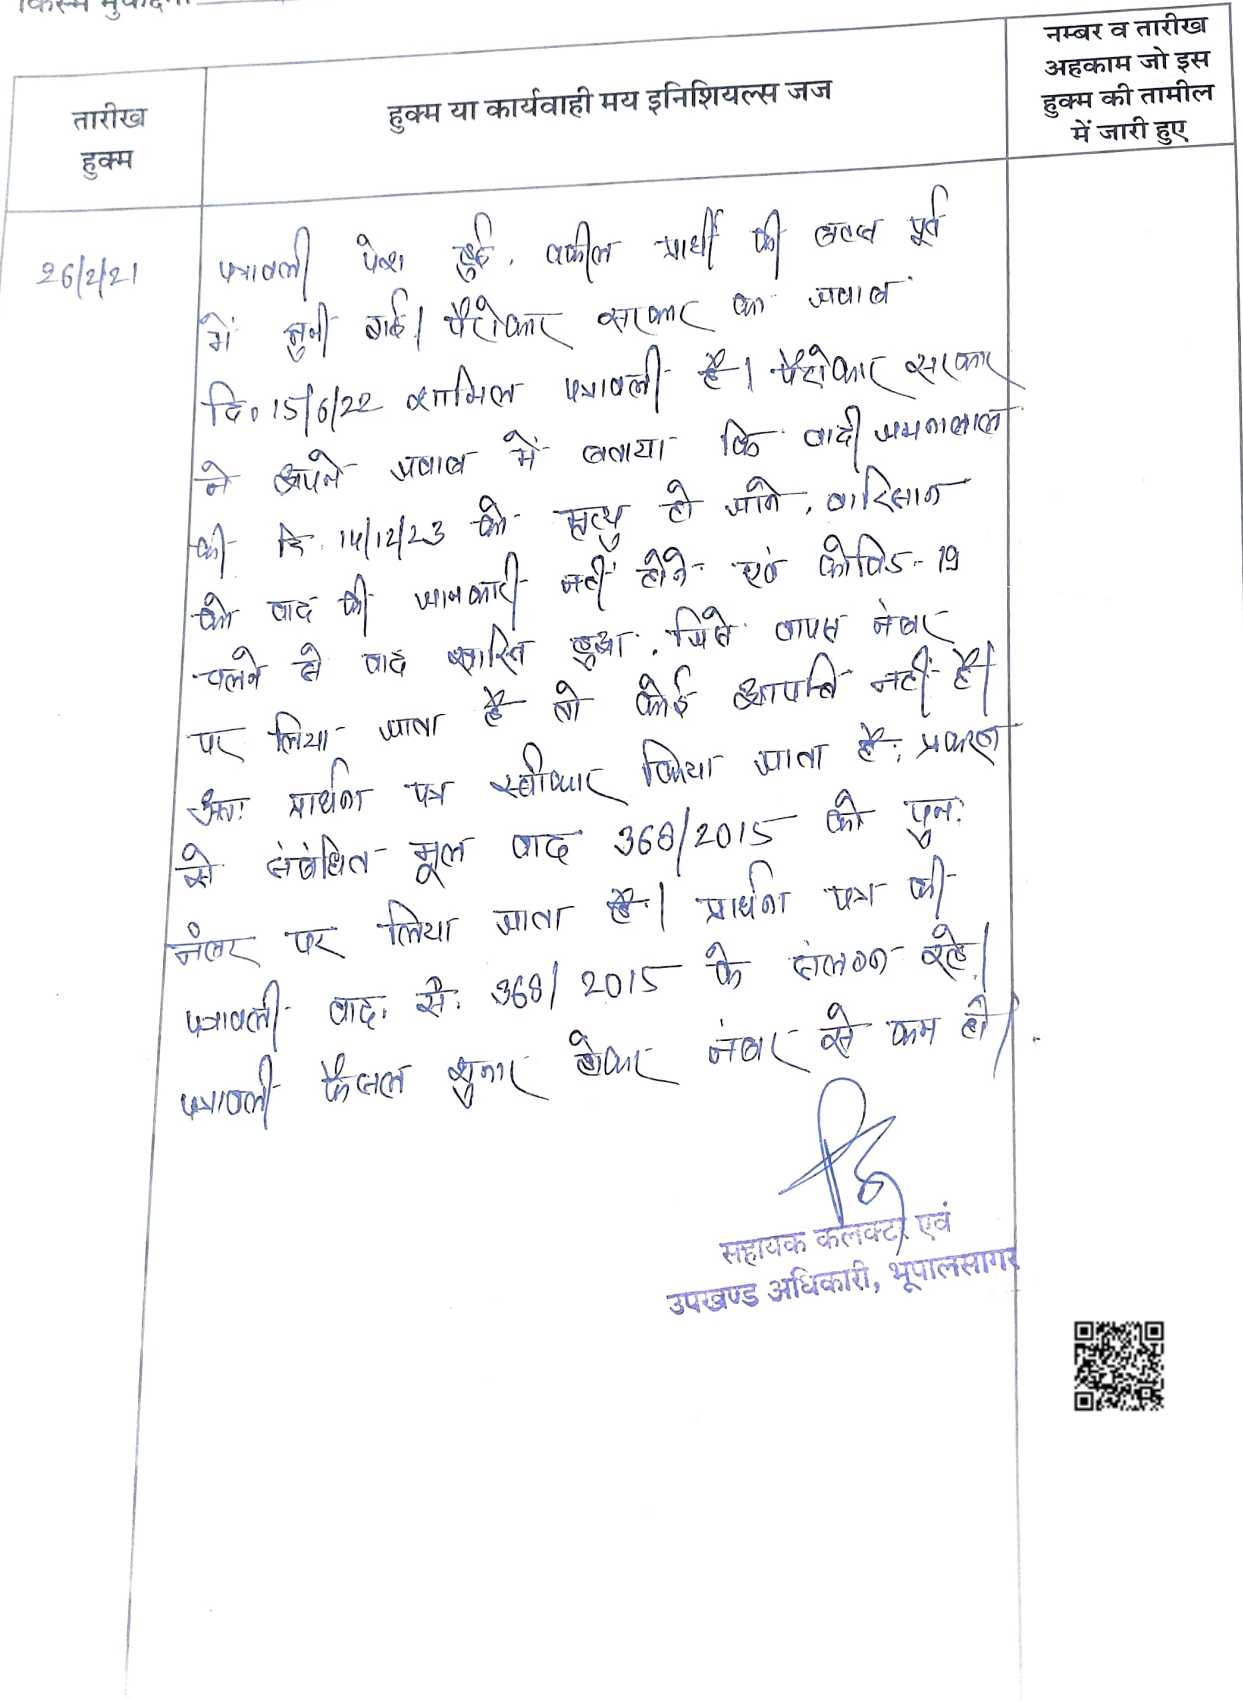 किस्म मुकदमा
तारीख
हुक्म
हुक्म या कार्यवाही मय इनिशियल्स जज
नम्बर व तारीख
अहकाम जो इस
हुक्म की तामील
में जारी हुए
26/2/21
पत्रावली पेश हुई. वकील प्रार्थी की बहस पूर्व
में सुनी गई। पैरोकार सरकार का जवाब
दि० 15/6/22 शामिल पत्रावली है। पैरोकार सरकार
ने अपने जवाब में बताया कि वादी
की दि. 14/12/23 को मृत्यु हो जाने, वारिसान
को वाद की जानकारी नहीं होने एवं कोविड-19
चलने से वाद खारिज हुआ. जिसे वापस नंबर
पर लिया जाता है तो कोई आपत्ति नहीं है।
अतः प्रार्थना पत्र स्वीकार किया जाता है, प्रकरण
से संबंधित मूल वाद 368/2015 को पुनः
नंबर पर लिया जाता है। प्रार्थना पत्र की
पत्रावली वाद. सं. 368/2015 के संलग्न रहे।
पत्रावली फैसल शुमार होकर नंबर से कम हो।
सहायक कलक्टर एवं
उपखण्ड अधिकारी, भूपालसागर